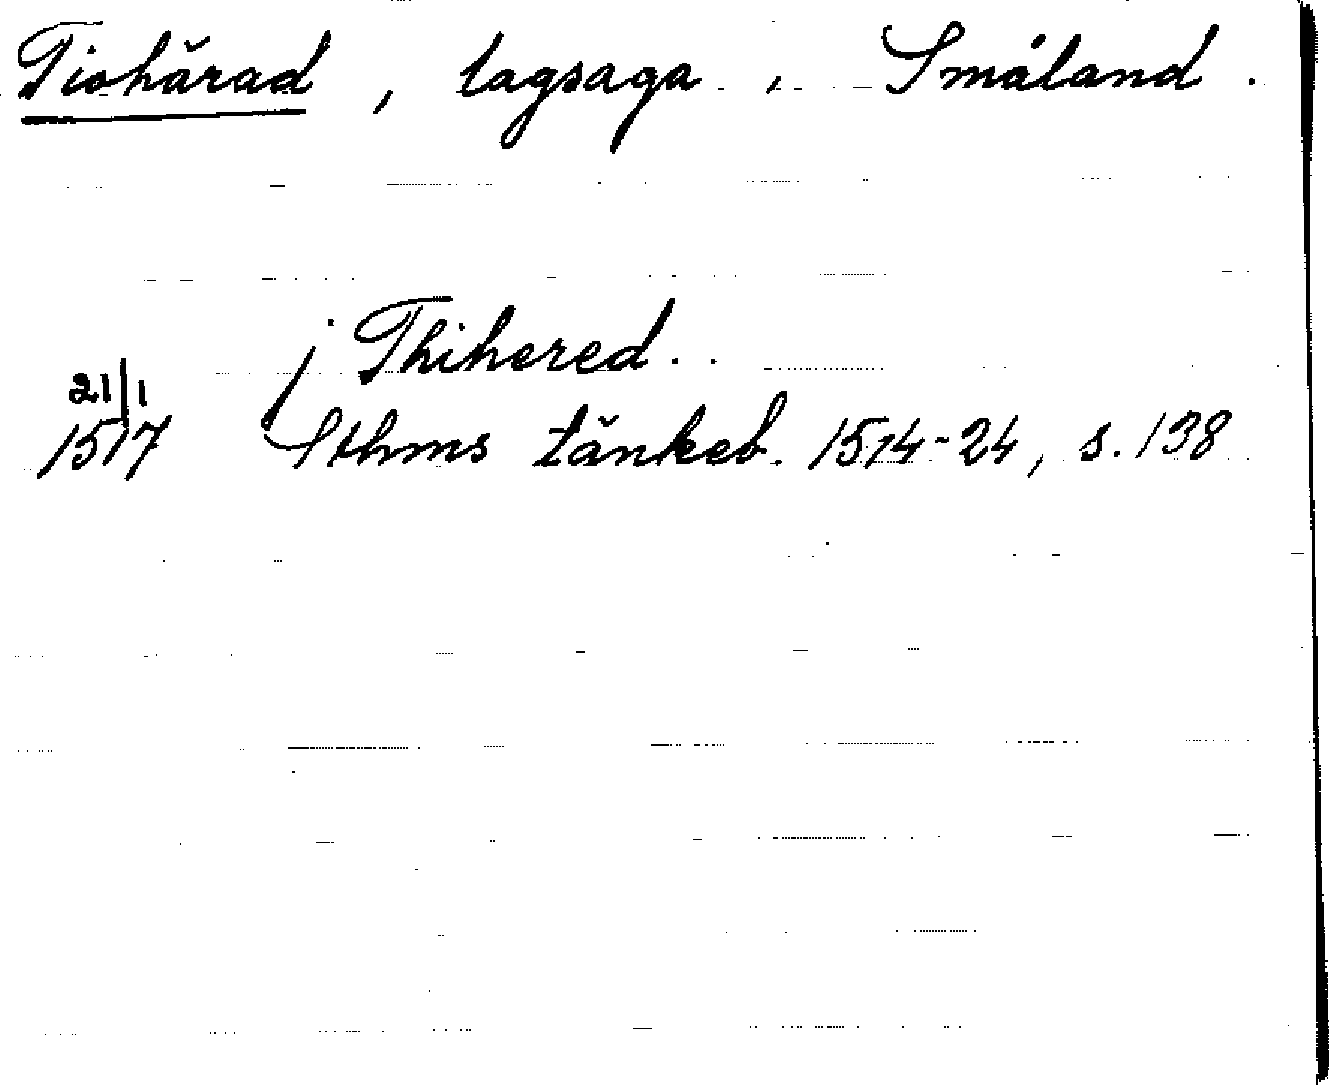 Tiohärad, lagsaga, Småland.
j Thihered..
21/1
1517 Sthms tänkeb. 1514-24, s. 138